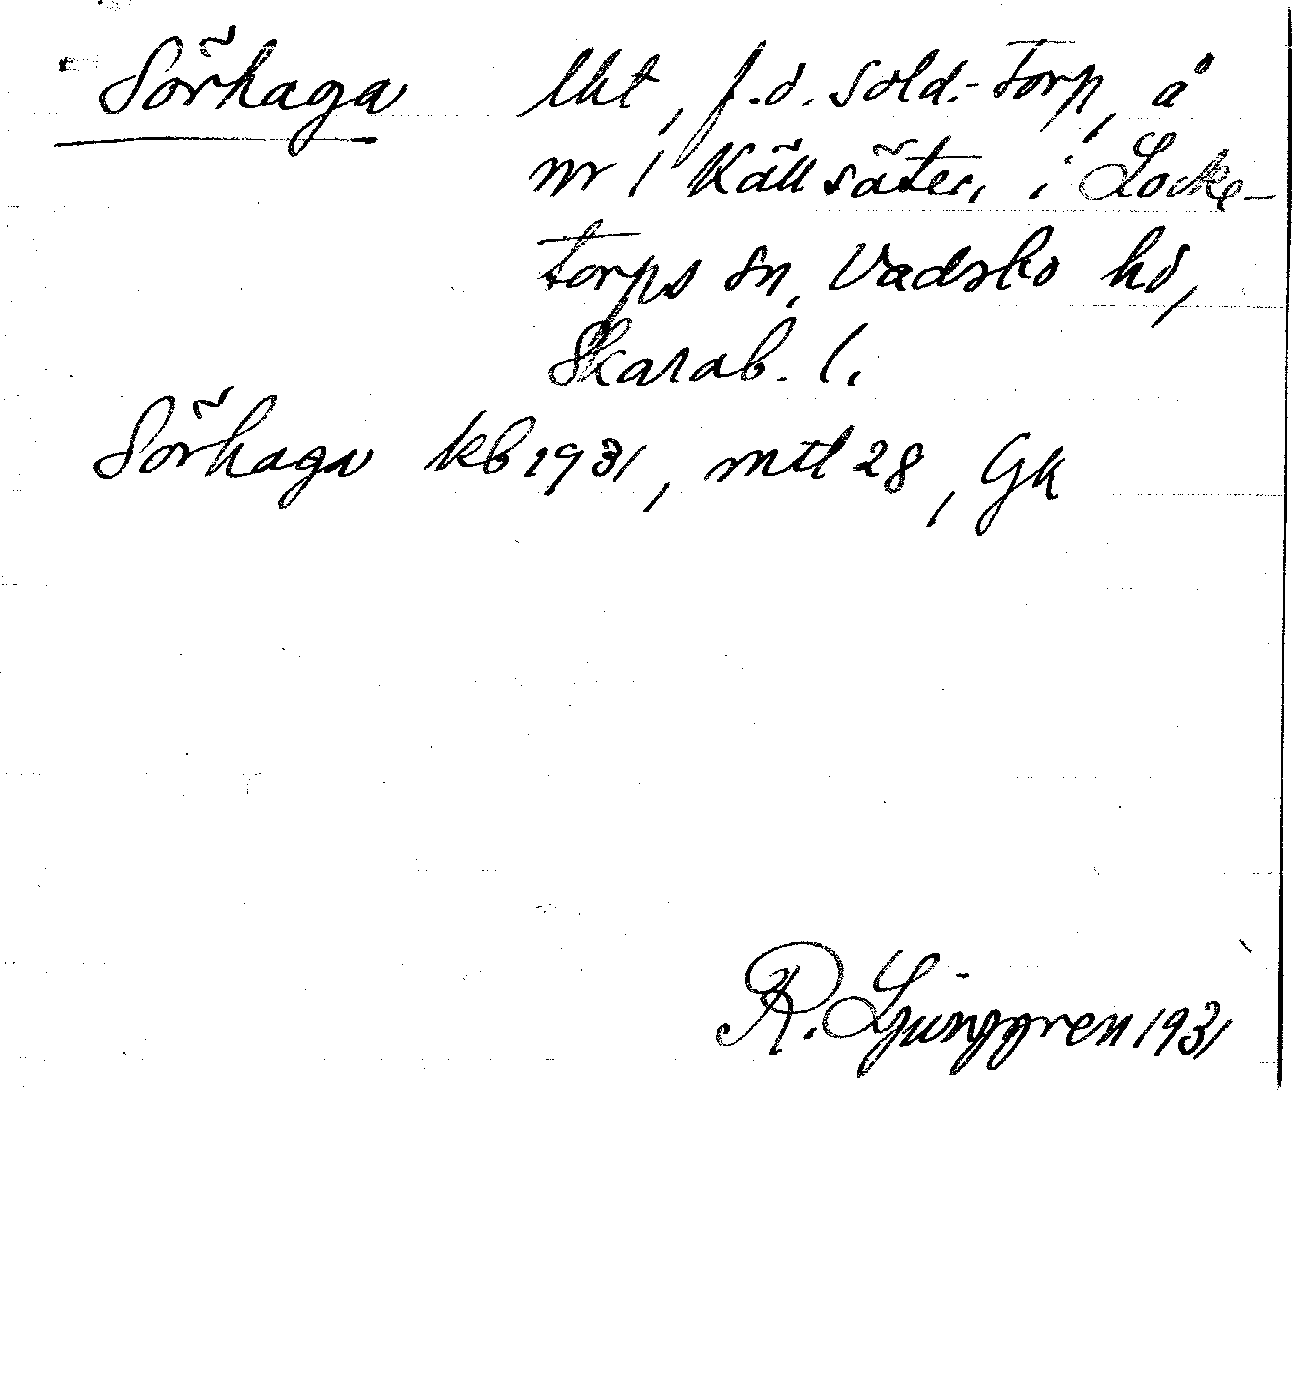 Sörhaga lht, f.d. sold.-torp, å
nr 1 Källsäter, i Locke-
torps sn, Vadsbo hd,
Skarab. l.
Sörhaga kb 1931, mtl 28, Gk
R. Ljunggren 1931